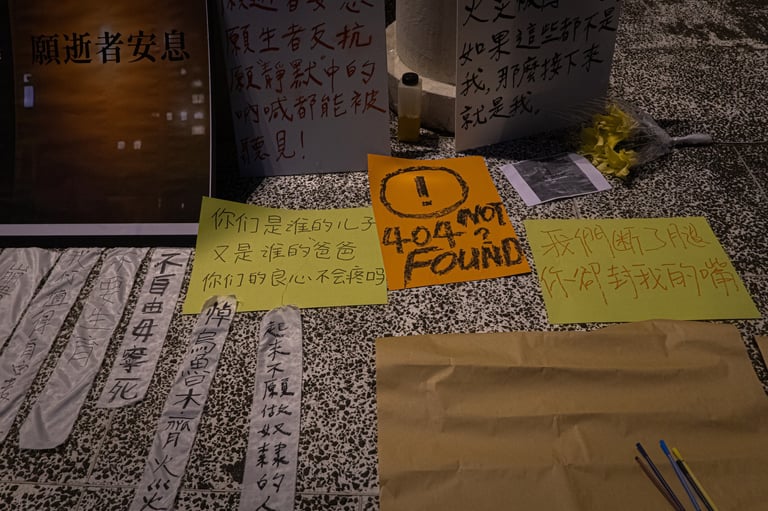 願逝者安息
願逝者安息
願生者反抗
願靜默中的
吶喊都能被
聽見!
如果這些都不是
我,那麼接下來
就是我。
!
404 NOT
?
FOUND
你们是谁的儿子
又是谁的爸爸
你们的良心不会疼吗
我們斷了腿
你卻封我的嘴
不自由毋寧死
悼烏魯木齊火災
起來不願做奴隸的人